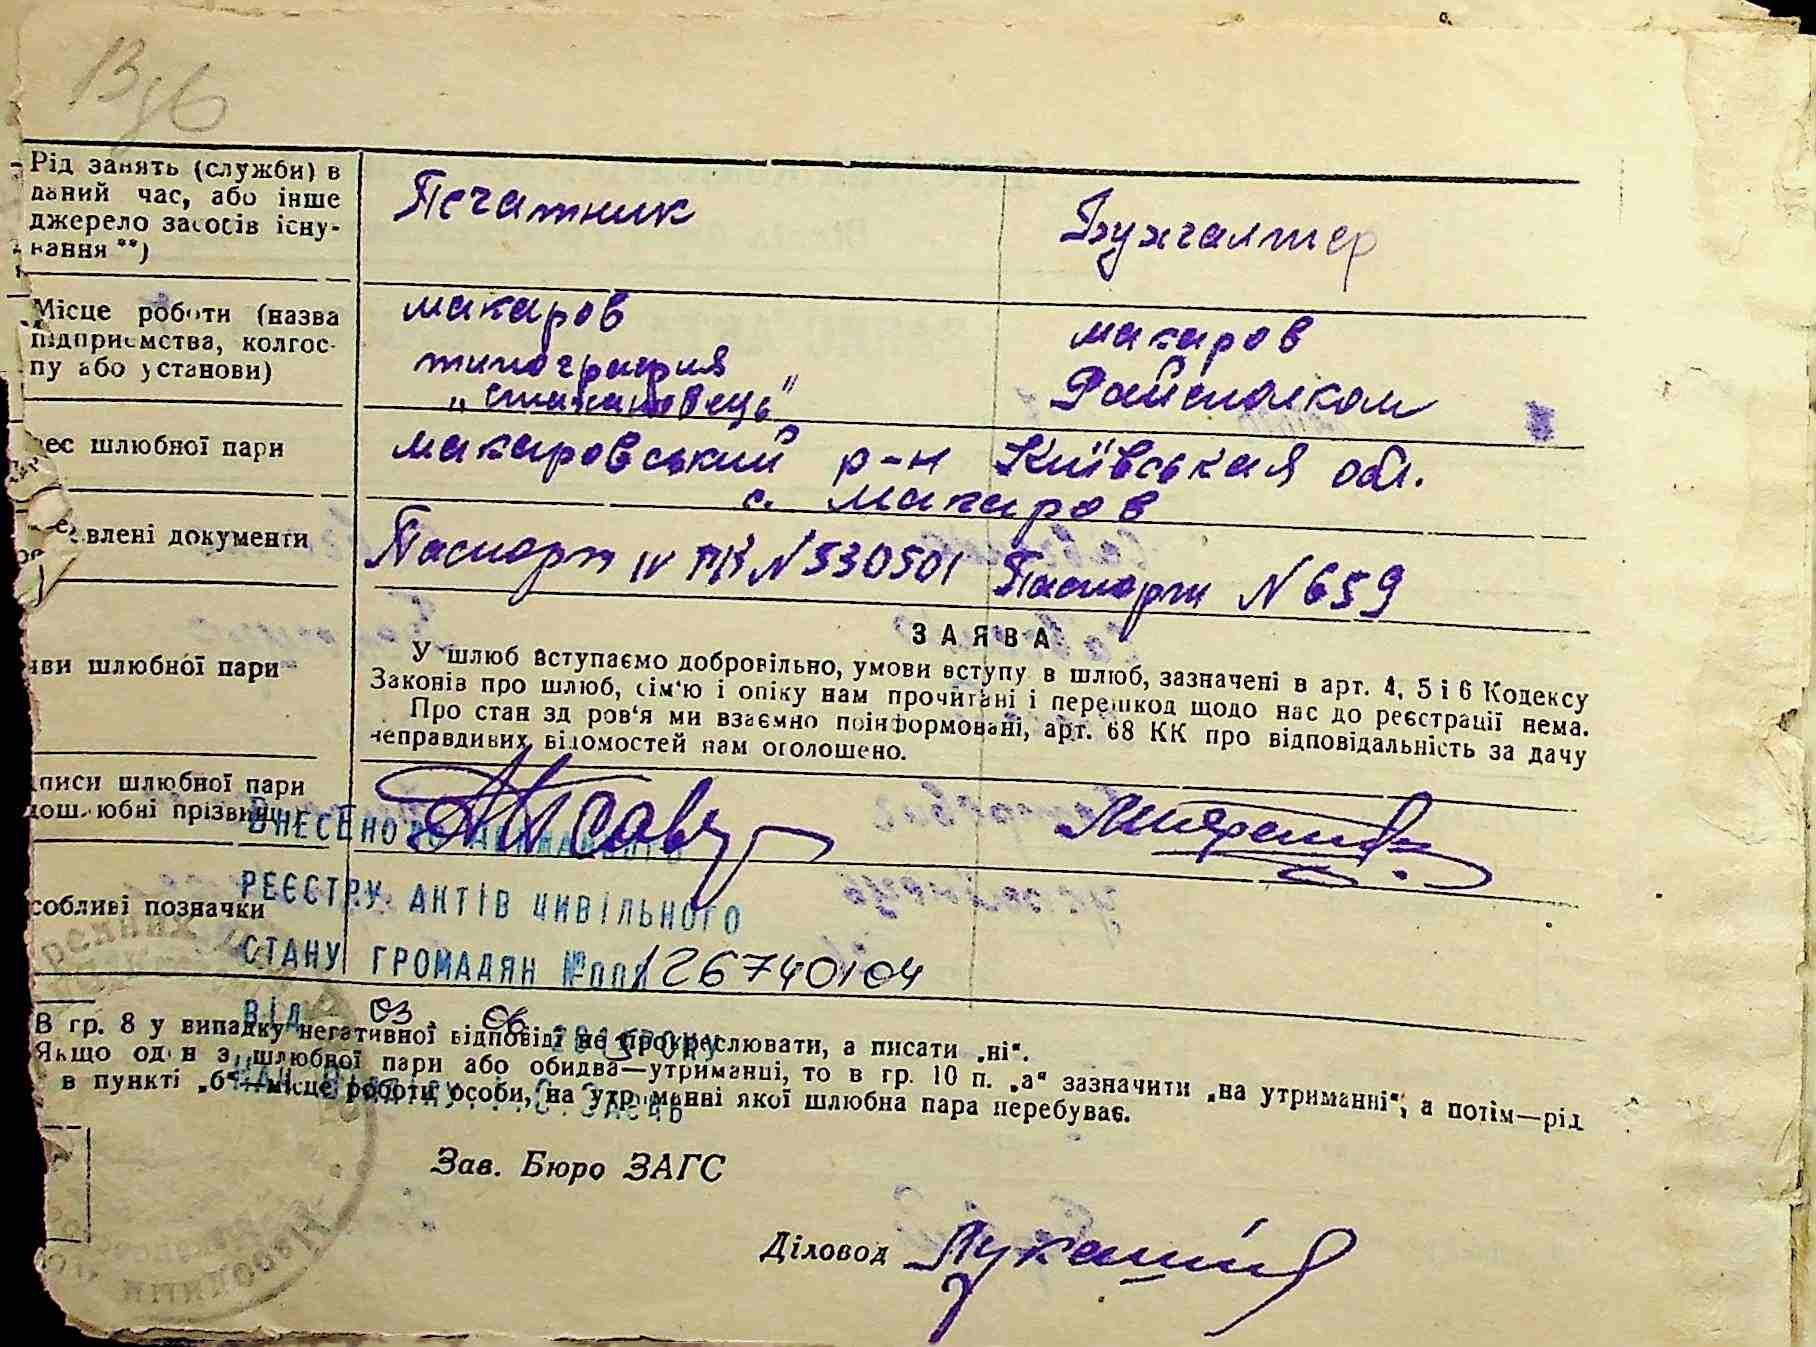 Рід занять (служби) в
даний час, або інше
джерело засобів існу-
вання **)
Печатник
Бухгалтер
Місце роботи (назва
підприємства, колгос-
пу або установи)
макаров
типография
„стахановець"
макаров
Райисполком
рес шлюбної пари
макаровський р-н Київськая обл.
с. Макаров
влені документи
Паспорт IV ПК N 530501
Паспорт N 659
яви шлюбної пари
ЗАЯВА
У шлюб вступаємо добровільно, умови вступу в шлюб, зазначені в арт. 4, 5 і 6 Кодексу
Законів про шлюб, сім'ю і опіку нам прочитані і перешкод щодо нас до реєстрації нема.
Про стан здоров'я ми взаємно поінформовані, арт. 68 КК про відповідальність за дачу
неправдивих відомостей нам оголошено.
писи шлюбної пари
дошлюбні прізвищ
ВНЕСЕНО ДО ДЕРЖАВНОГО
РЕЄСТРУ АКТІВ ЦИВІЛЬНОГО
СТАНУ ГРОМАДЯН №00126740104
ВІД 03 06 РОКУ
собливі позначки
В гр. 8 у випадку негативної відповіді не прокреслювати, а писати „ні".
Якщо один з шлюбної пари або обидва—утриманці, то в гр. 10 п. „а" зазначити „на утриманні", а потім—рід
в пункті „б"—місце роботи особи, на утриманні якої шлюбна пара перебуває.
Зав. Бюро ЗАГС
Діловод